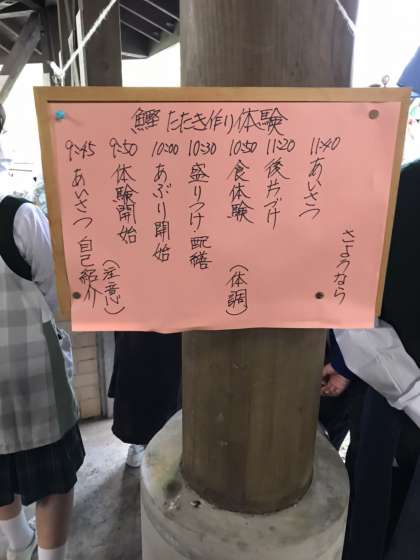 鰹たたき作り体験
9:45 あいさつ 自己紹介
9:50 体験開始 (注意)
10:00 あぶり開始
10:30 盛りつけ・配膳
10:50 食体験 (体調)
11:20 後片づけ
11:40 あいさつ
さようなら